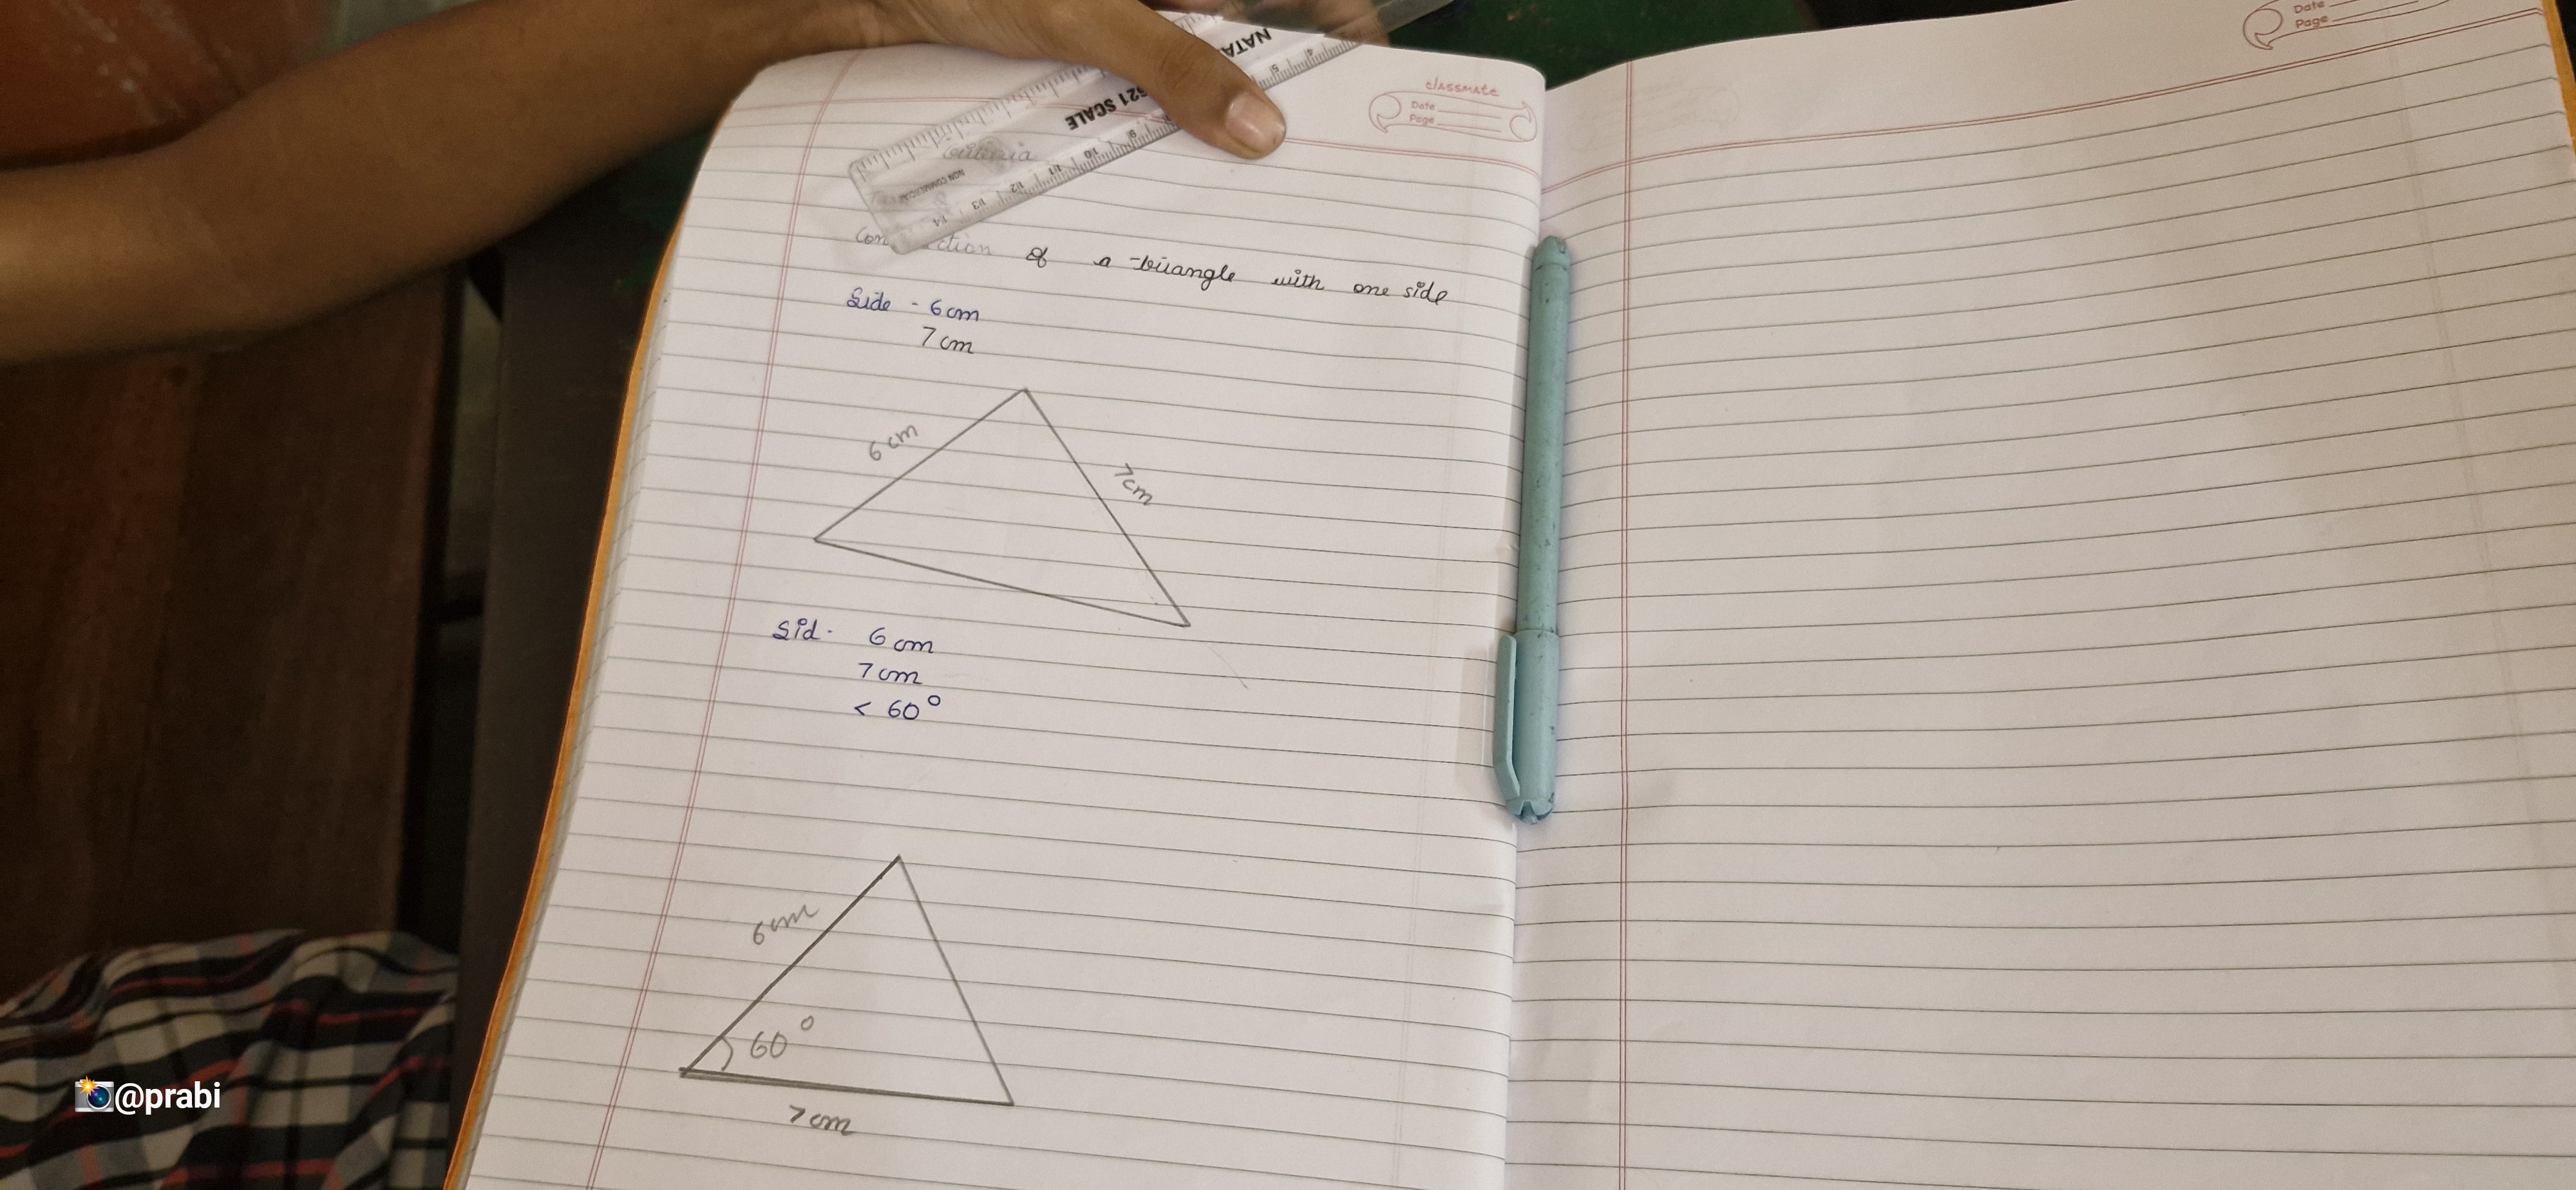 classmate
Date
Page
Date
Page
NATA
621 SCALE
NON COMMERCIAL
5 9 10 11 12 13 14
Criteria
of a triangle with one side
Side - 6 cm
7 cm
6 cm
7 cm
Sid - 6 cm
7 cm
< 60°
6 cm
60°
7 cm
@prabi